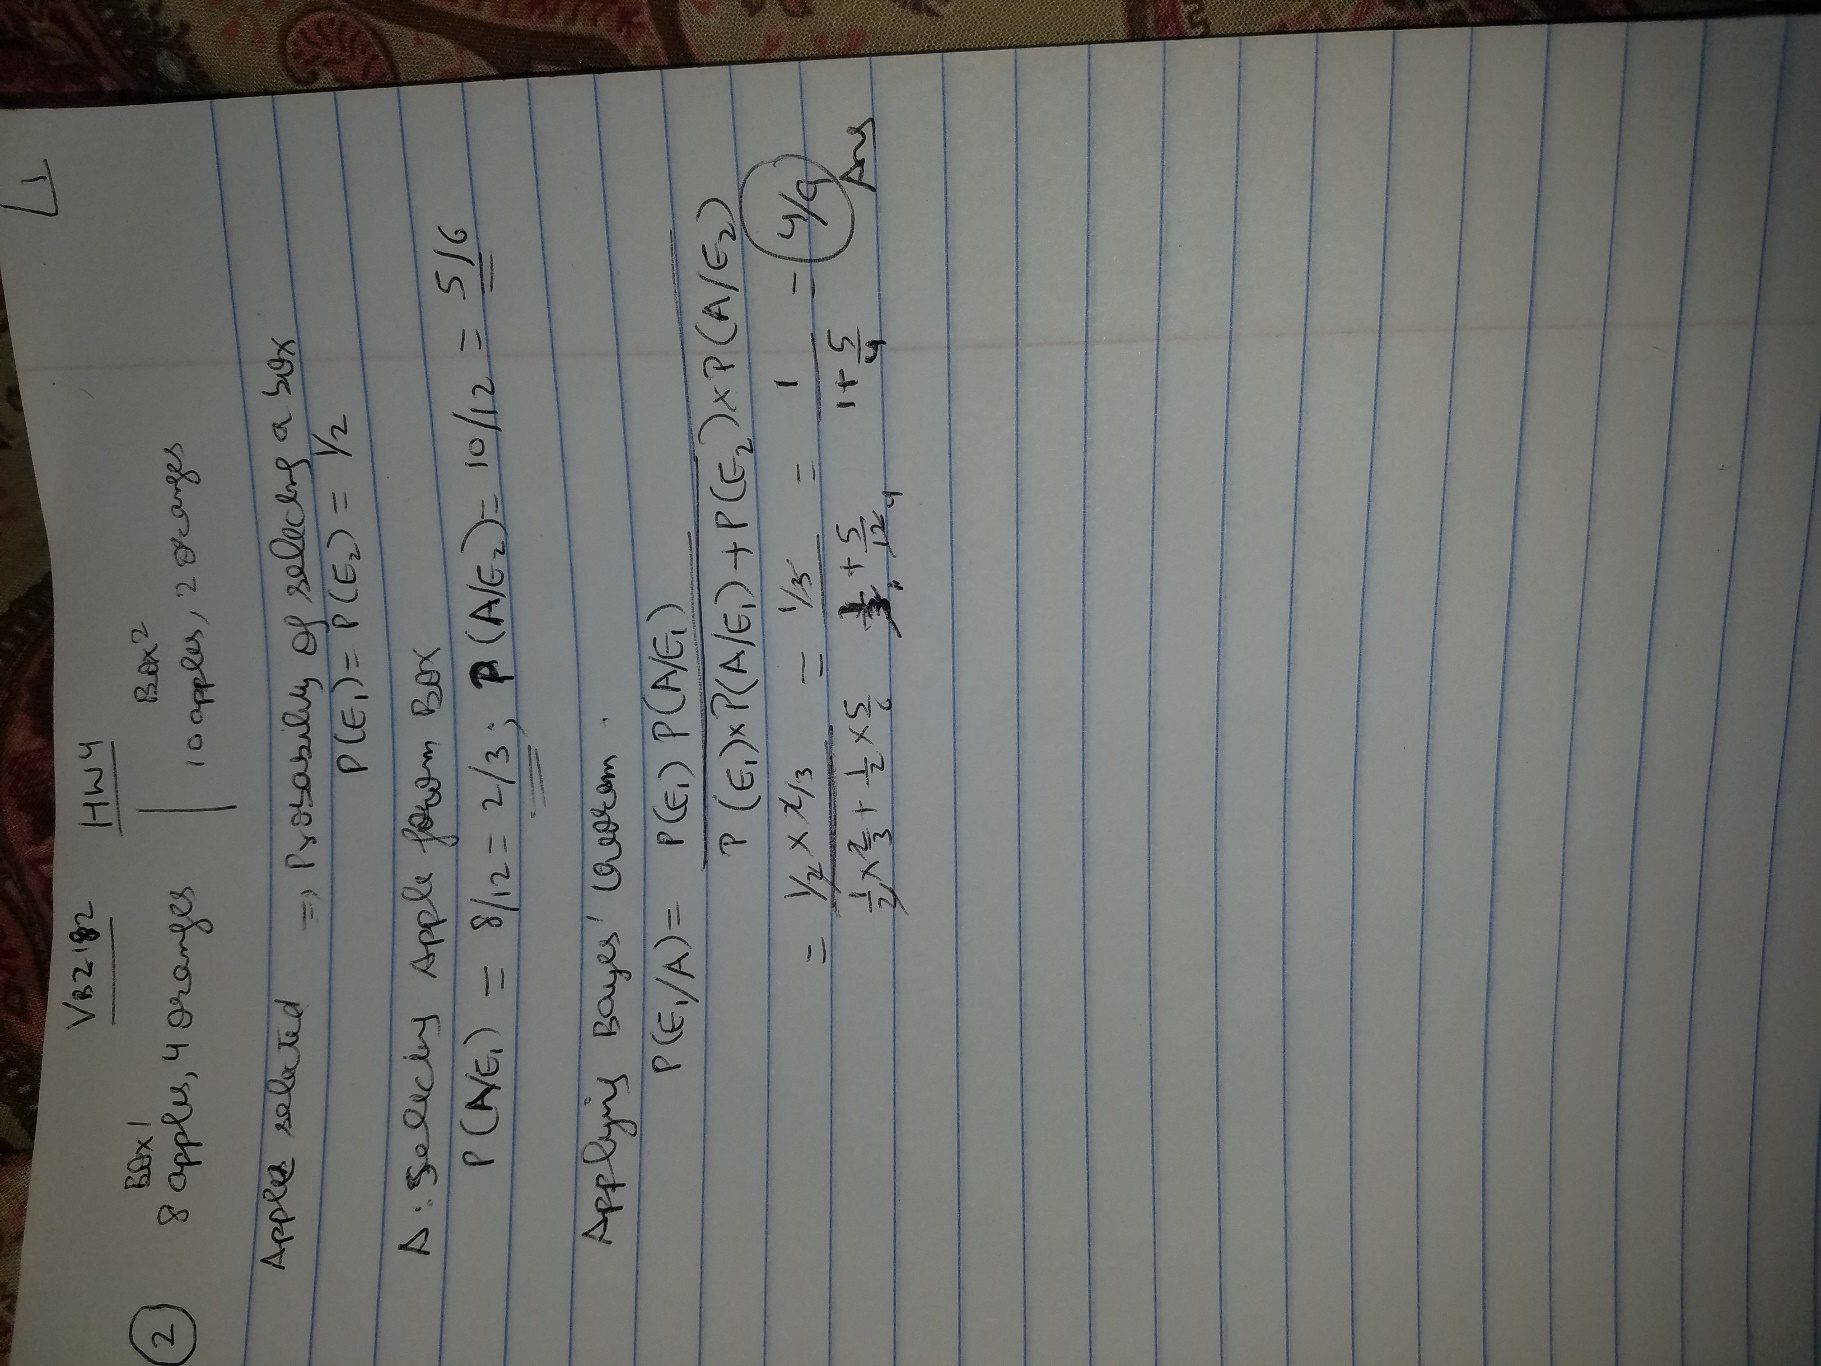 1
VB2182 HW4
Box1 Box2
② 8 apples, 4 oranges | 10 apples, 2 oranges
Apples selected ⇒ Probability of selecting a box
P(E₁) = P(E₂) = 1/2
A: Selecting Apple from Box
P(A/E₁) = 8/12 = 2/3; P(A/E₂) = 10/12 = 5/6
Applying Bayes' theorem.
P(E₁/A) = P(E₁) P(A/E₁)
P(E₁)×P(A/E₁)+P(E₂)×P(A/E₂)
= 1/2 × 2/3 = 1/3 = 1 = 4/9
1/2 × 2/3 + 1/2 × 5/6 1/3 + 5/12 4 1 + 5/4 Ans